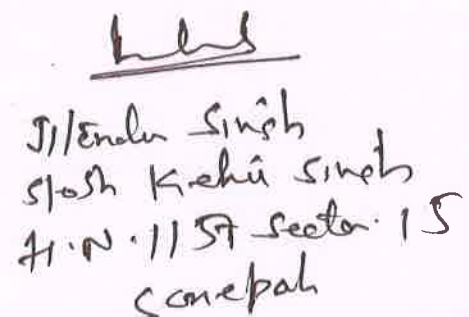 Jitender Singh
S/o Sh Kehri Singh
H.N. 1157 Sector. 15
Sonepat